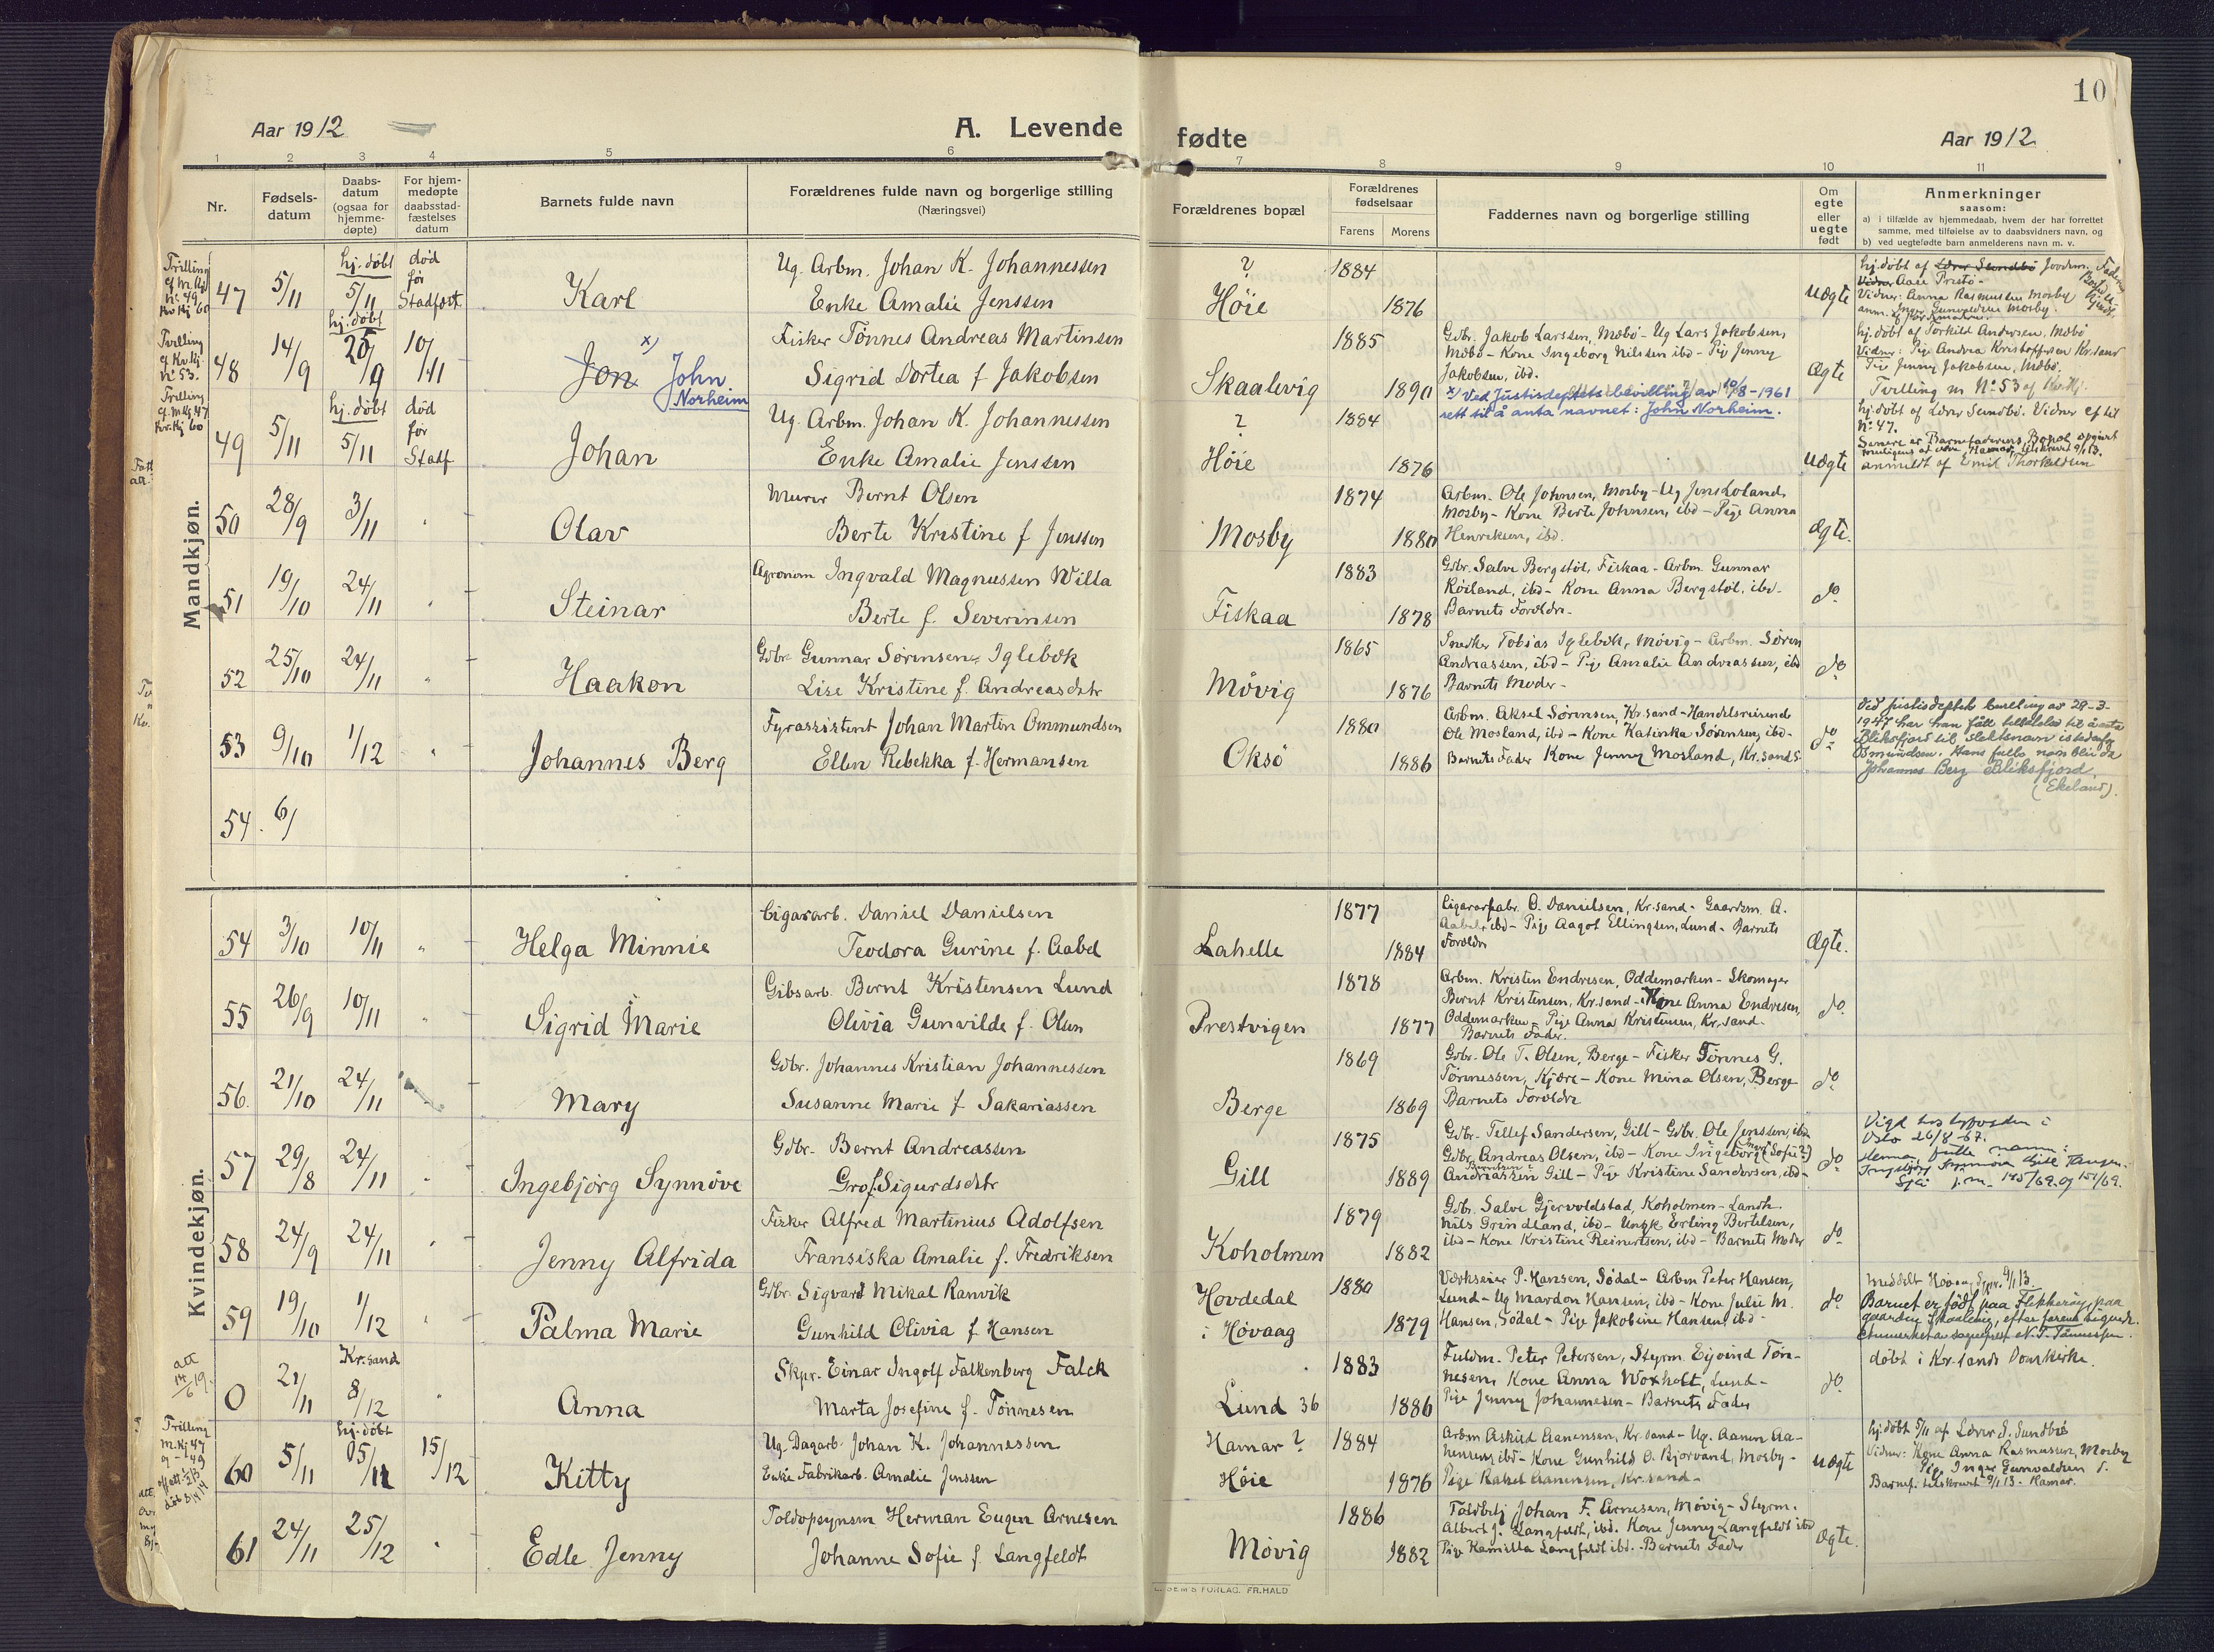 10
Aar 1912
A. Levende
fødte
Aar 1912
1 2 3 4 5 6 7 8 9 10 11
Nr.
Fødsels-
datum
Daabs-
datum
(ogsaa for
hjemme-
døpte)
For hjem-
medøpte
daabsstad-
fæstelses
datum
Barnets fulde navn
Forældrenes fulde navn og borgerlige stilling
(Næringsvei)
Forældrenes bopæl
Forældrenes
fødselsaar
Farens Morens
Faddernes navn og borgerlige stilling
Om
egte
eller
uegte
født
Anmerkninger
saasom:
a) i tilfælde av hjemmedaab, hvem der har forrettet
samme, med tilføielse av to daabsvidners navn, og
b) ved uegtefødte barn anmelderens navn m. v.
Mandkjøn.
Trilling
47 5/11 hj. døbt 5/11 død før Stadfæst. Karl
Ug. Arbm. Johan K. Johannessen
Enke Amalie Jenssen
? Høie 1884 1876 Uægte
Vidner: Anna Rasmussen Mosby
Tvilling
cf Kv. kj.
No 53.
48 14/9 hj. døbt 25/9 10/11 Jon x) John Norheim
Fisker Tønnes Andreas Martinsen
Sigrid Dortea f Jakobsen
Skaalevig 1885 1890
Gdbr. Jakob Larssen, Mæbø - Ug Lars Jakobsen,
Mæbø - Kone Ingeborg Nilssen ibd - Pige Jenny
Jakobsen, ibd.
x) Ved Justisdeptets bevilling av 10/8-1961
rett til å anta navnet: John Norheim.
Ægte
hj. døbt af Torkild Andersen, Mæbø
Vidner: Pige Andrea Kristoffersen Kr.sand
Pige Jenny Jakobsen, Mæbø.
Tvilling m No 53 af Kv.kj.
Trilling
cf. M.kj 47
Kv. Kj 60
49 5/11 hj. døbt 5/11 død før Stadf Johan
Ug. Arbm. Johan K. Johannessen
Enke Amalie Jenssen
? Høie 1884 1876 Uægte
hj. døbt af Lærer Sundbø. Vidner cf til
No 47.
anmeldt af Emil Thorkildsen
50 28/9 3/11 " Olav
Murer Bernt Olsen
Berte Kristine f Jenssen
Mosby 1874 1880
Arbm. Ole Johnsen, Mosby - Ug Jens Loland,
Mosby - Kone Berte Johnsen, ibd - Pige Anna
Henriksen, ibd.
Ægte.
51 19/10 24/11 " Steinar
Agronom Ingvald Magnussen Willa
Berte f. Severinsen
Fiskaa 1883 1878
Gdbr. Salve Bergstøl, Fiskaa - Arbm. Gunnar
Røiland, ibd - Kone Anna Bergstøl, ibd.
Barnets Forældre -
do
52 25/10 24/11 " Haakon
Gdbr Gunnar Sørensen, Iglebæk
Lise Kristine f. Andreasdatr
Møvig 1865 1876
Snedker Tobias Iglebæk, Møvig - Arbm. Søren
Andreassen, ibd - Pige Amalie Andreassen, ibd
Barnets Moder -
do
53 9/10 1/12 " Johannes Berg
Fyrassistent Johan Martin Ommundsen
Ellen Rebekka f. Hermansen
Oksø 1880 1886
Arbm. Aksel Sørensen, Kr.sand - Handelsreisende
Ole Mosland, ibd - Kone Katinka Sørensen, ibd -
Barnets Fader Kone Jenny Mosland, Kr.sand S
do
Ved justisdeptets bevilling av 28-3-
1947 har han fått tillatelse til å anta
Bliksfjord til slektsnavn istedenfor
Osmundsen. Hans fulle navn blir da
Johannes Berg Bliksfjord.
(Ekeland).
54. 6/
Kvindekjøn.
54 3/10 10/11 " Helga Minnie
Cigararb. Daniel Danielsen
Teodora Gurine f. Aabel
Lahelle 1877 1884
Cigararfabr. O. Danielsen, Kr.sand - Gaardsm. A.
Aabel, ibd - Pige Aagot Ellingsen, Lund - Barnets
Forældre
Ægte.
55 26/9 10/11 " Sigrid Marie
Gibsarb. Bernt Kristensen Lund
Olivia Gunvilde f. Olsen
Prestvigen 1878 1877
Arbm. Kristen Endresen, Oddemarken - Skomager
Bernt Kristensen, Kr.sand - Kone Anna Endresen,
Oddemarken - Pige Anna Kristensen, Kr.sand.
Barnets Fader.
do
56. 21/10 24/11 Mary
Gdbr. Johannes Kristian Johannessen
Susanne Marie f Sakariassen
Berge 1869 1869
Gdbr. Ole T. Olsen, Berge - Fisker Tønnes G.
Tønnessen, Kjære - Kone Mina Olsen, Berge
Barnets Forældre
do
57 29/8 24/11 " Ingebjørg Synnøve
Gdbr. Bernt Andreassen
Gro f. Sigurdsdatr
Gill 1875 1889
Gdbr. Tellef Sandersen, Gill - Gdbr. Ole Jenssen, ibd
Gdbr. Andreas Olsen, ibd - Kone Ingeborg (Sofie?)
Andreassen Gill - Pige Kristine Sandersen, ibd -
do
Oslo 26/8-67.
Hennes fulle navn:
Ingebjørg Synnøve Gill Tangen.
58 24/9 24/11 " Jenny Alfrida
Fisker Alfred Martinius Adolfsen
Fransiska Amalie f. Fredriksen
Koholmen 1879 1882
Gdbr. Salve Gjervoldstad, Koholmen - Landh.
Nils Grindland, ibd - Ungk Erling Bertelsen,
ibd - Kone Kristine Reinertsen, ibd - Barnets Moder
do
59 19/10 1/12 " Palma Marie
Gdbr. Sigvart Mikal Ranvik
Gunhild Olivia f Hansen
Hovdedal
i Høvaag 1880 1879
Værkseier P. Hansen, Sødal - Arbm Peter Hansen,
Lund - Ug Mardon Hansen, ibd - Kone Julie M.
Hansen, Sødal - Pige Jakobine Hansen, ibd -
do
meddelt Høvaag Spr. 9/1 13.
Barnet er født paa Flekkerøy, paa
0 21/11 Kr.sand 8/12 " Anna
Skpr. Einar Ingolf Falkenberg Falck
Marta Josefine f. Tønnesen
Lund 36 1883 1886
Fuldm. Peter Petersen, Styrm. Eyvind Tøn-
nesen, Kone Anna Woxholt, Lund -
Pige Jenny Johannesen - Barnets Fader
do
døbt i Kr.sands Domkirke.
Trilling
M.Kj 47
og - 49
60 5/11 hj. døbt 05/11 15/12 Kitty
Ug. Dagarb. Johan K. Johannessen
Enke Fabrikarb. Amalie Jenssen
Hamar ?
Høie 1884 1876
Arbm Askild Aanensen, Kr.sand - Ug. Aanen Aa-
nensen, ibd - Kone Gunhild O. Bjorvand, Mosby -
Pige Rakel Aanensen, Kr.sand -
uægte
hj. døbt 5/11 af Lærer S. Sundbø
Vidner: Kone Anna Rasmussen, Mosby
Pige Inger Gunvaldsen d.
Barnef. tilskrevet 9/1 13 - Hamar.
61 24/11 25/12 " Edle Jenny
Toldopsynsm Herman Eugen Arnesen
Johanne Sofie f. Langfeldt
Møvig 1886 1882
Toldbetj Johan F. Arnesen, Møvig - Styrm.
Albert J. Langfeldt, ibd. Kone Jenny Langfeldt ibd
Pige Kamilla Langfeldt ibd. - Barnets Fader
Ægte.
FORLAG. FR. HALD